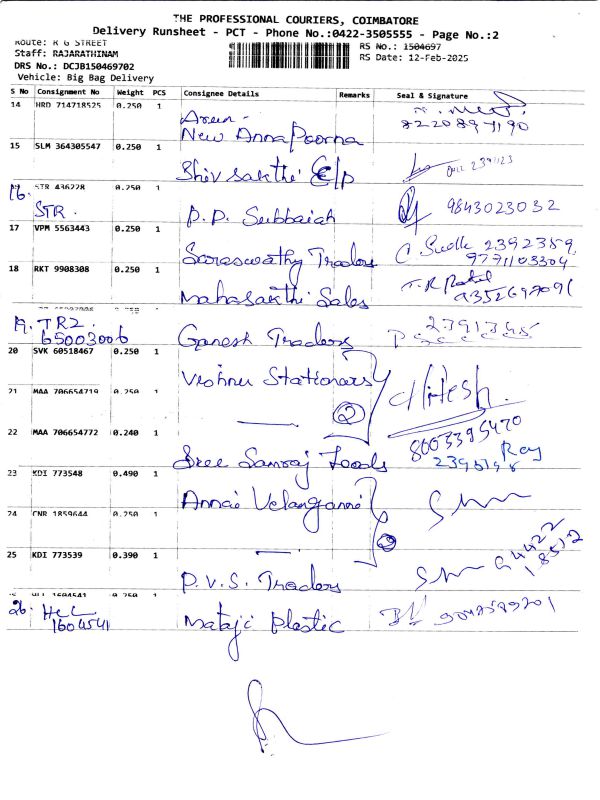 THE PROFESSIONAL COURIERS, COIMBATORE
Delivery Runsheet - PCT - Phone No.:0422-3505555 - Page No.:2
Route: R G STREET
RS No.: 1504697
Staff: RAJARATHINAM
RS Date: 12-Feb-2025
DRS No.: DCJB150469702
Vehicle: Big Bag Delivery
S No Consignment No Weight PCS Consignee Details Remarks Seal & Signature
14 HRD 714718525 0.250 1
Arun -
New Annapoorna
8220897190
15 SLM 364305547 0.250 1
Shiv sakthi
16. STR 436228 0.250 1
STR.
P.P. Subbaiah 9843023032
17 VPM 5563443 0.250 1
Saraswathy Traders
C. 2392389,
9771103304
18 RKT 9908308 0.250 1
Mahasakthi Sales
T.R Patel
19. TR2.
65003006 Ganesh Traders
20 SVK 60518467 0.250 1
Vishnu Stationers
21 MAA 706654719 0.250 1
2
Hitesh.
8003395470
22 MAA 706654772 0.240 1
Sree Samraj Foods
23 KDI 773548 0.490 1
Annai Velanganni
24 CNR 1859644 0.250 1
2
25 KDI 773539 0.390 1
P.V.S. Traders
26. HCL
1604541 Mataji Plastic